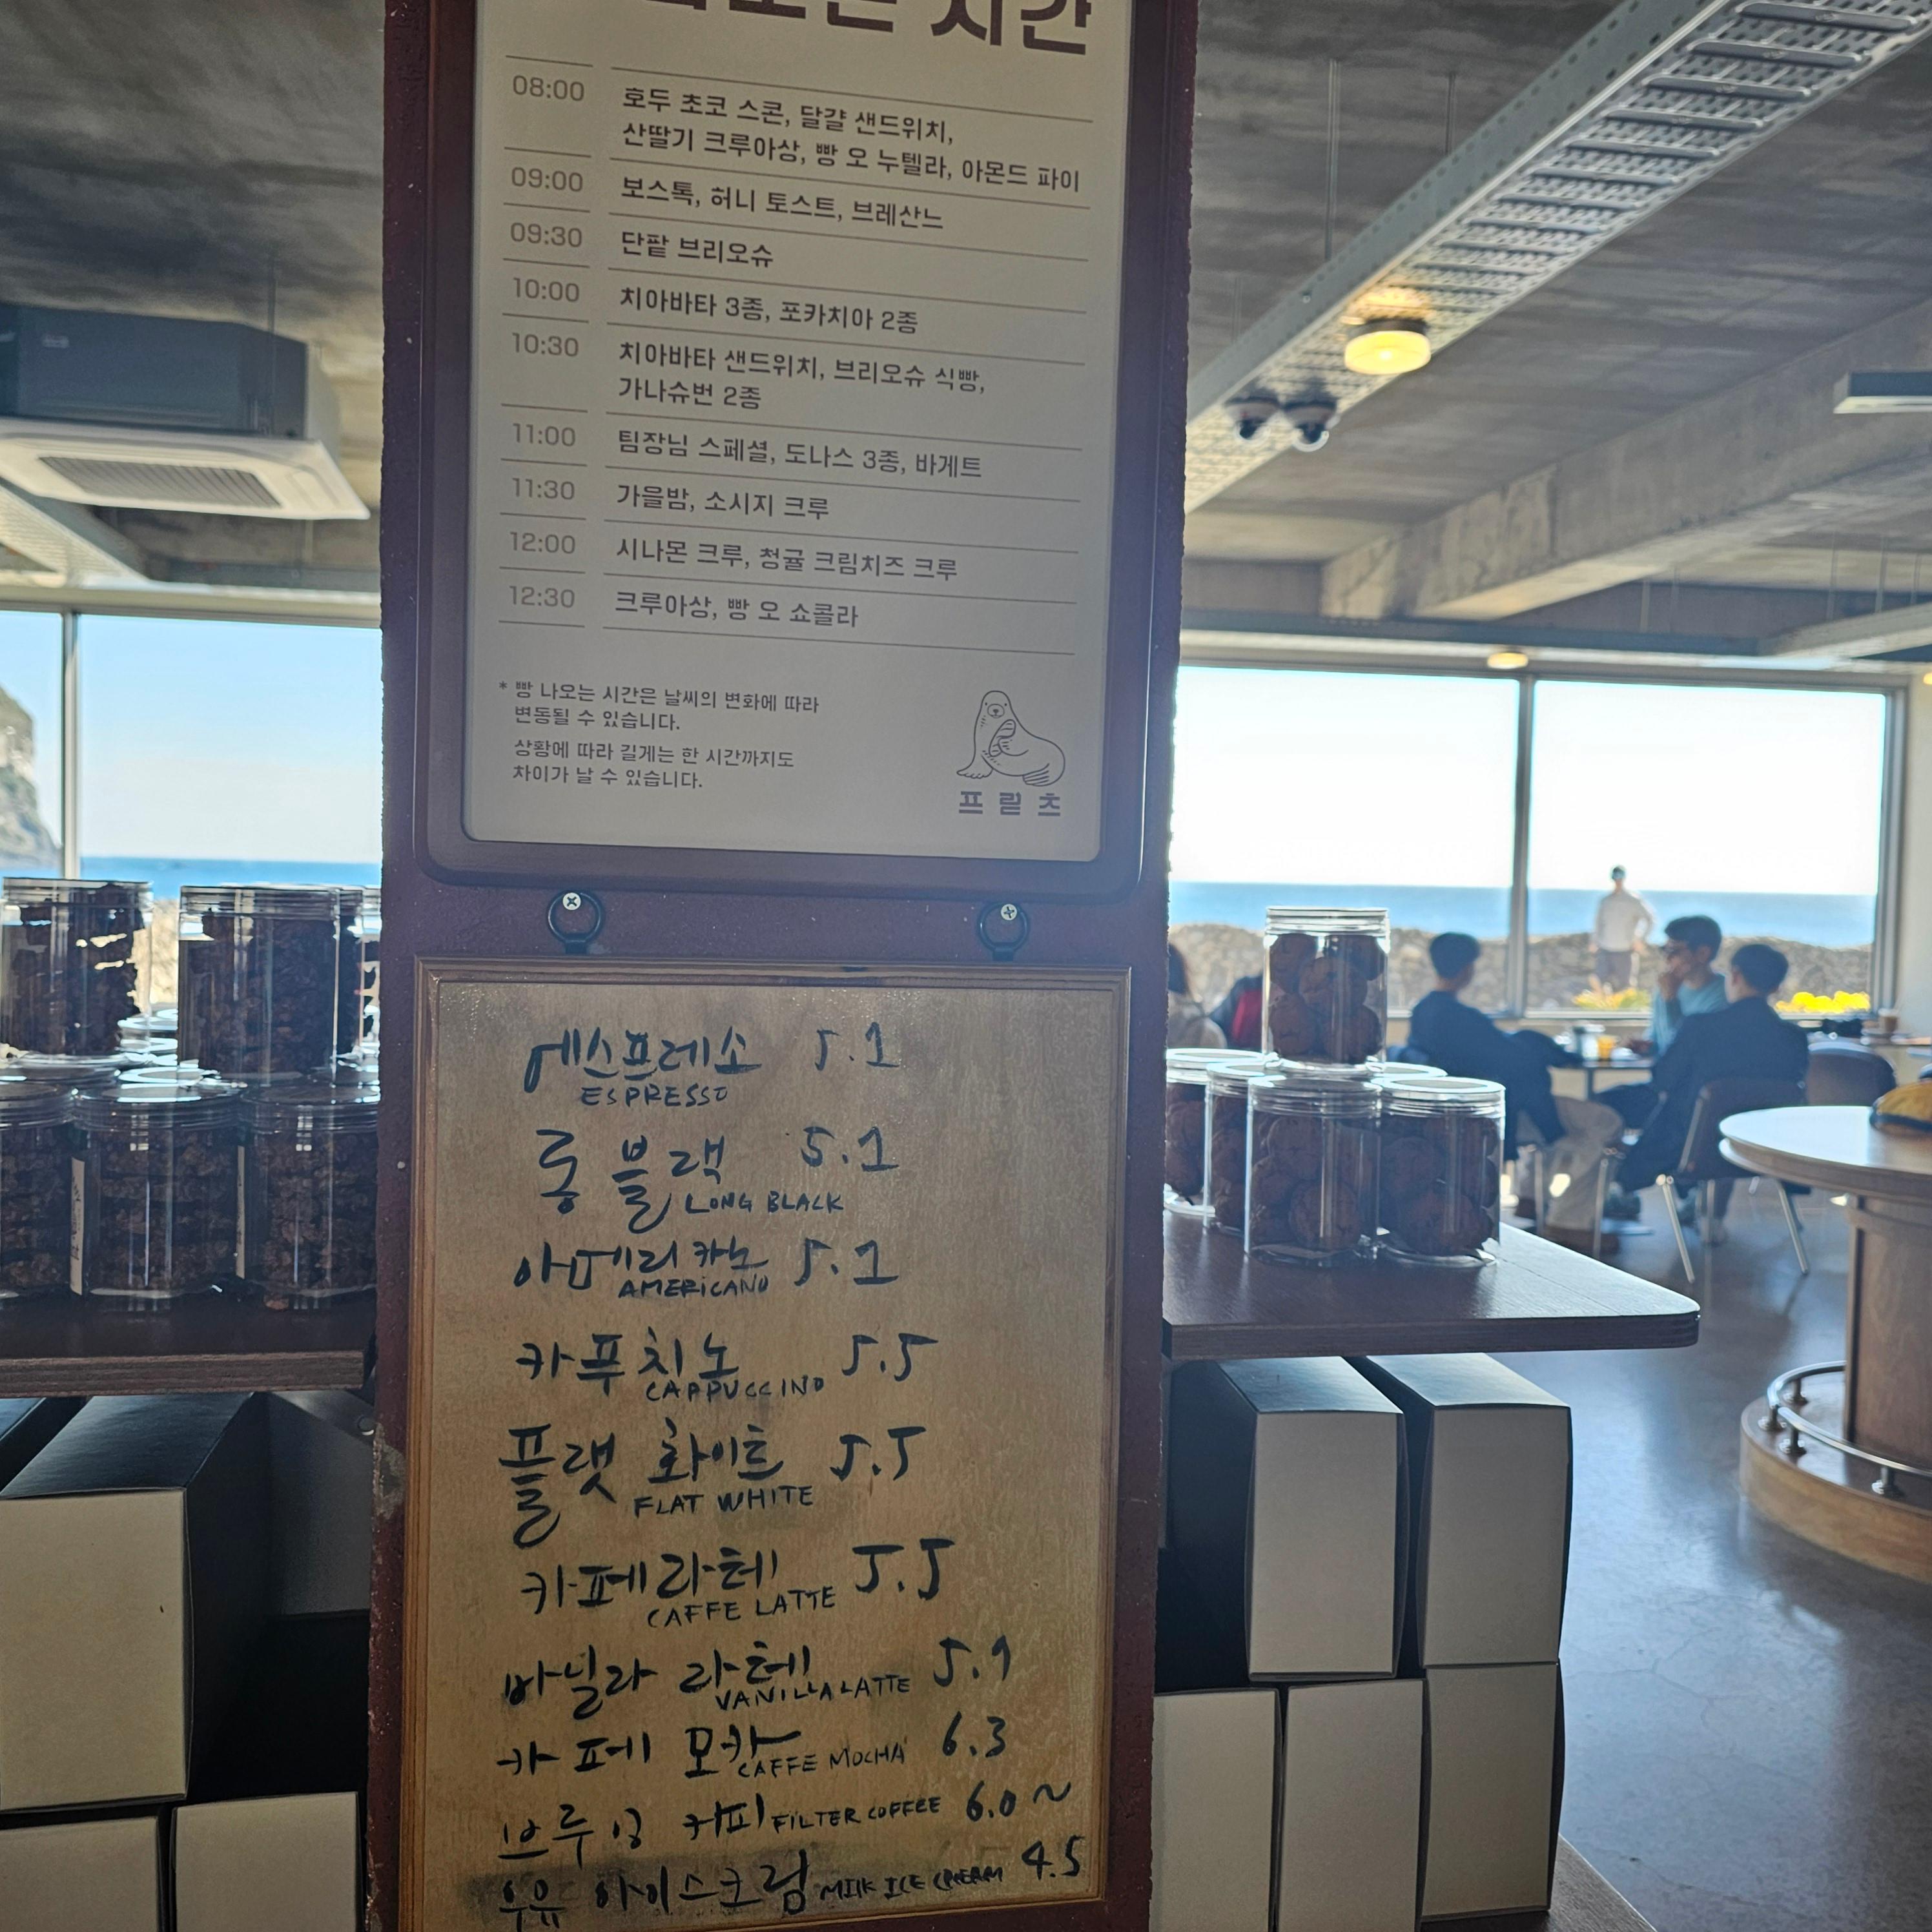 시간
08:00 호두 초코 스콘, 달걀 샌드위치,
산딸기 크루아상, 빵 오 누텔라, 아몬드 파이
09:00 보스톡, 허니 토스트, 브레산느
09:30 단팥 브리오슈
10:00 치아바타 3종, 포카치아 2종
10:30 치아바타 샌드위치, 브리오슈 식빵,
가나슈번 2종
11:00 팀장님 스페셜, 도나스 3종, 바게트
11:30 가을밤, 소시지 크루
12:00 시나몬 크루, 청귤 크림치즈 크루
12:30 크루아상, 빵 오 쇼콜라
* 빵 나오는 시간은 날씨의 변화에 따라
변동될 수 있습니다.
상황에 따라 길게는 한 시간까지도
차이가 날 수 있습니다.
프릳츠
에스프레소 5.1
ESPRESSO
롱 블랙 5.1
LONG BLACK
아메리카노 5.1
AMERICANO
카푸치노 5.5
CAPPUCCINO
플랫 화이트 5.5
FLAT WHITE
카페라테 5.5
CAFFE LATTE
바닐라 라테 5.9
VANILLA LATTE
카페 모카 6.3
CAFFE MOCHA
브루잉 커피 FILTER COFFEE 6.0~
우유 아이스크림 MILK ICE CREAM 4.5